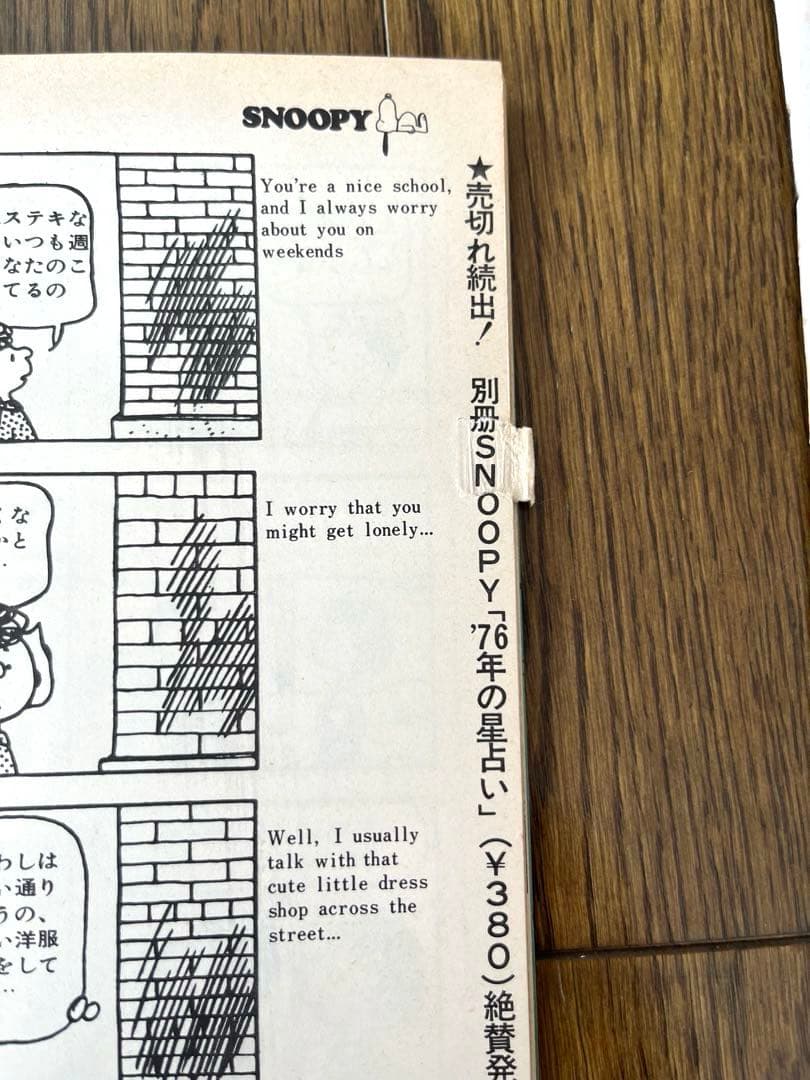 SNOOPY
ステキな
いつも週
なたのこ
てるの
You're a nice school,
and I always worry
about you on
weekends
な
と
I worry that you
might get lonely...
わしは
い通り
うの、
い洋服
をして
…
Well, I usually
talk with that
cute little dress
shop across the
street...
★売切れ続出! 別冊SNOOPY「'76年の星占い」(¥380)絶賛発